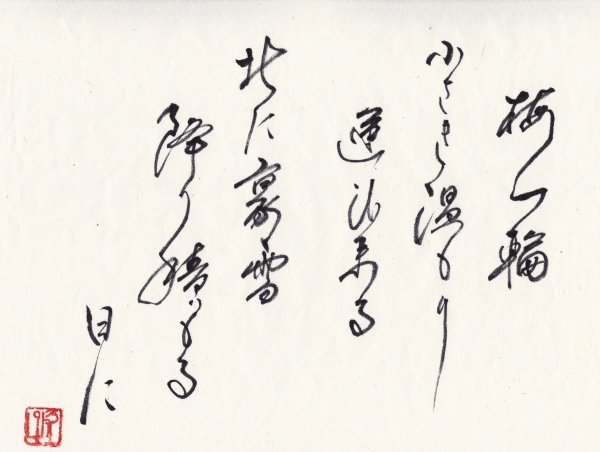 梅一輪
小さき温もり
運び来る
北に豪雪
降り積もる
日に